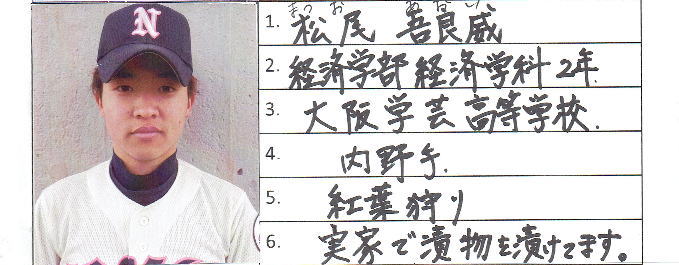 N
1. 松尾 吾良威
2. 経済学部経済学科2年
3. 大阪学芸高等学校.
4. 内野手.
5. 紅葉狩り
6. 実家で漬物を漬けてます。